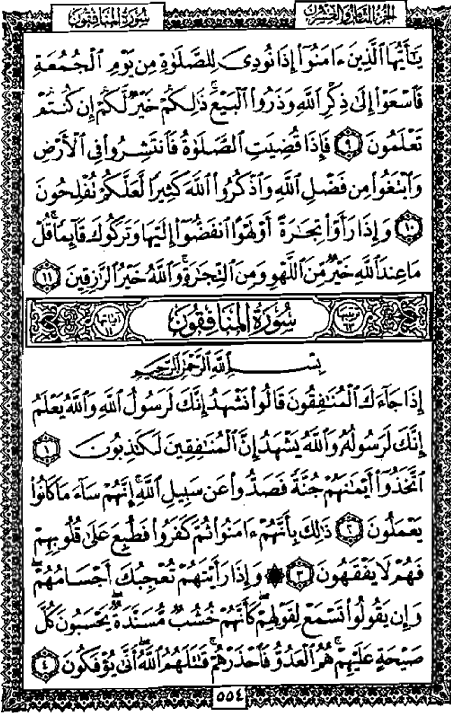 الجزء الثامن والعشرون
سورة المنافقون
يَٰٓأَيُّهَا ٱلَّذِينَ ءَامَنُوٓا۟ إِذَا نُودِىَ لِلصَّلَوٰةِ مِن يَوْمِ ٱلْجُمُعَةِ
فَٱسْعَوْا۟ إِلَىٰ ذِكْرِ ٱللَّهِ وَذَرُوا۟ ٱلْبَيْعَ ۚ ذَٰلِكُمْ خَيْرٌ لَّكُمْ إِن كُنتُمْ
تَعْلَمُونَ ٩ فَإِذَا قُضِيَتِ ٱلصَّلَوٰةُ فَٱنتَشِرُوا۟ فِى ٱلْأَرْضِ
وَٱبْتَغُوا۟ مِن فَضْلِ ٱللَّهِ وَٱذْكُرُوا۟ ٱللَّهَ كَثِيرًا لَّعَلَّكُمْ تُفْلِحُونَ
١٠ وَإِذَا رَأَوْا۟ تِجَٰرَةً أَوْ لَهْوًا ٱنفَضُّوٓا۟ إِلَيْهَا وَتَرَكُوكَ قَآئِمًا ۚ قُلْ
مَا عِندَ ٱللَّهِ خَيْرٌ مِّنَ ٱللَّهْوِ وَمِنَ ٱلتِّجَٰرَةِ ۚ وَٱللَّهُ خَيْرُ ٱلرَّٰزِقِينَ ١١
سُورَةُ المُنَافِقُونَ
بِسْمِ ٱللَّهِ ٱلرَّحْمَٰنِ ٱلرَّحِيمِ
إِذَا جَآءَكَ ٱلْمُنَٰفِقُونَ قَالُوا۟ نَشْهَدُ إِنَّكَ لَرَسُولُ ٱللَّهِ ۗ وَٱللَّهُ يَعْلَمُ
إِنَّكَ لَرَسُولُهُۥ وَٱللَّهُ يَشْهَدُ إِنَّ ٱلْمُنَٰفِقِينَ لَكَٰذِبُونَ ١
ٱتَّخَذُوٓا۟ أَيْمَٰنَهُمْ جُنَّةً فَصَدُّوا۟ عَن سَبِيلِ ٱللَّهِ ۚ إِنَّهُمْ سَآءَ مَا كَانُوا۟
يَعْمَلُونَ ٢ ذَٰلِكَ بِأَنَّهُمْ ءَامَنُوا۟ ثُمَّ كَفَرُوا۟ فَطُبِعَ عَلَىٰ قُلُوبِهِمْ
فَهُمْ لَا يَفْقَهُونَ ٣ ۞ وَإِذَا رَأَيْتَهُمْ تُعْجِبُكَ أَجْسَامُهُمْ ۖ
وَإِن يَقُولُوا۟ تَسْمَعْ لِقَوْلِهِمْ ۖ كَأَنَّهُمْ خُشُبٌ مُّسَنَّدَةٌ ۖ يَحْسَبُونَ كُلَّ
صَيْحَةٍ عَلَيْهِمْ ۚ هُمُ ٱلْعَدُوُّ فَٱحْذَرْهُمْ ۚ قَٰتَلَهُمُ ٱللَّهُ ۖ أَنَّىٰ يُؤْفَكُونَ ٤
٥٥٤